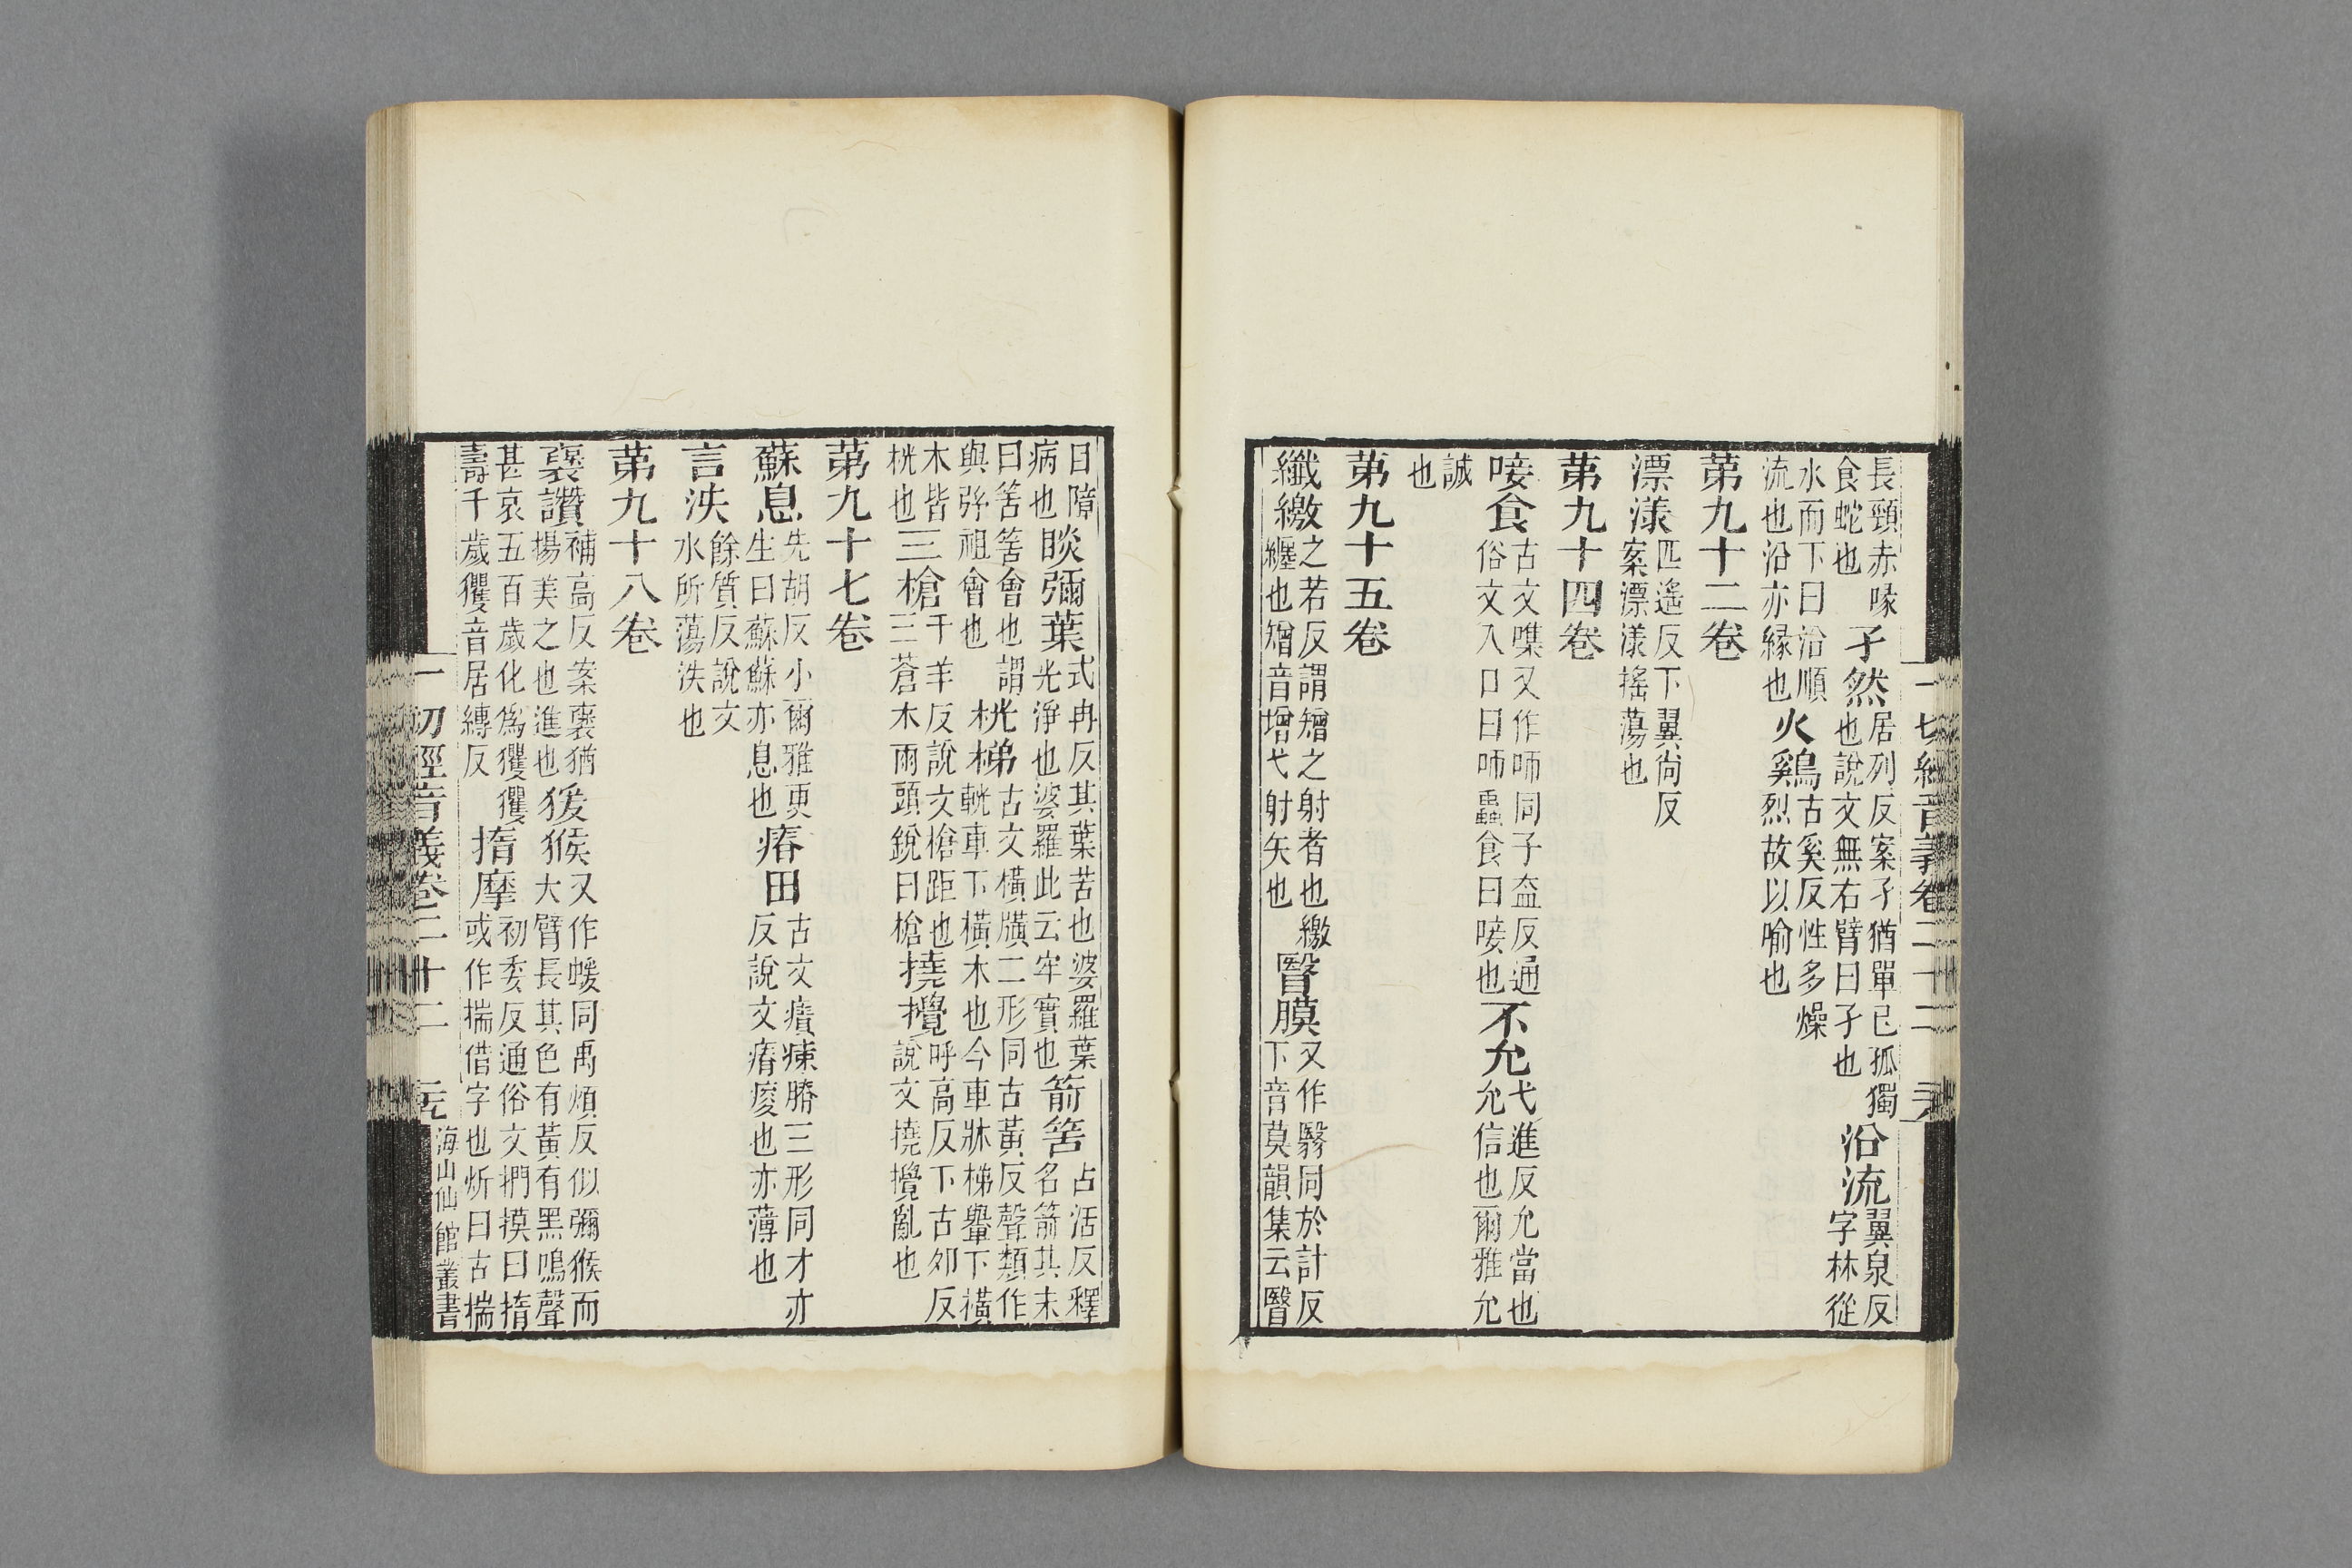 一切經音義卷二十二
長頸赤喙食蛇也孑然居列反案孑猶單已孤獨也說文無右臂曰孑也沿流翼泉反字林從
水而下曰沿順流也沿亦緣也火鷄古奚反性多燥烈故以喻也
第九十二卷
漂漾匹遙反下翼尚反案漂漾搖蕩也
第九十四卷
唼食古文又作咂同子盍反通俗文入口曰咂蟲食曰唼也不允弋進反允當也允信也爾雅允
誠也
第九十五卷
纖繳之若反謂矰之射者也繳纏也矰音增弋射矢也瞖膜又作翳同於計反下音莫韻集云瞖
目障病也睒彌葉式冉反其葉苦也婆羅葉光淨也婆羅此云牢實也箭筈占活反釋名箭其末
曰筈筈會也謂與弦祖會也桄梯古文橫二形同古黃反聲類作軦車下橫木也今車牀梯轝下橫
木皆桄也三槍千羊反說文槍距也三蒼木兩頭銳曰槍撓攪呼高反下古夘反說文撓攪亂也
第九十七卷
蘇息先胡反小爾雅更生曰蘇蘇亦息也瘠田古文膌三形同才亦反說文瘠瘦也亦薄也
言泆餘質反說文水所蕩泆也
第九十八卷
襃讚補高反案襃猶揚美之也進也猨猴又作蝯同禹煩反似獼猴而大臂長其色有黃有黑鳴聲
甚哀五百歲化爲玃玃壽千歲玃音居縛反揣摩初委反通俗文捫摸曰揣或作揣借字也炘曰古揣
一切經音義卷二十二 海山仙館叢書